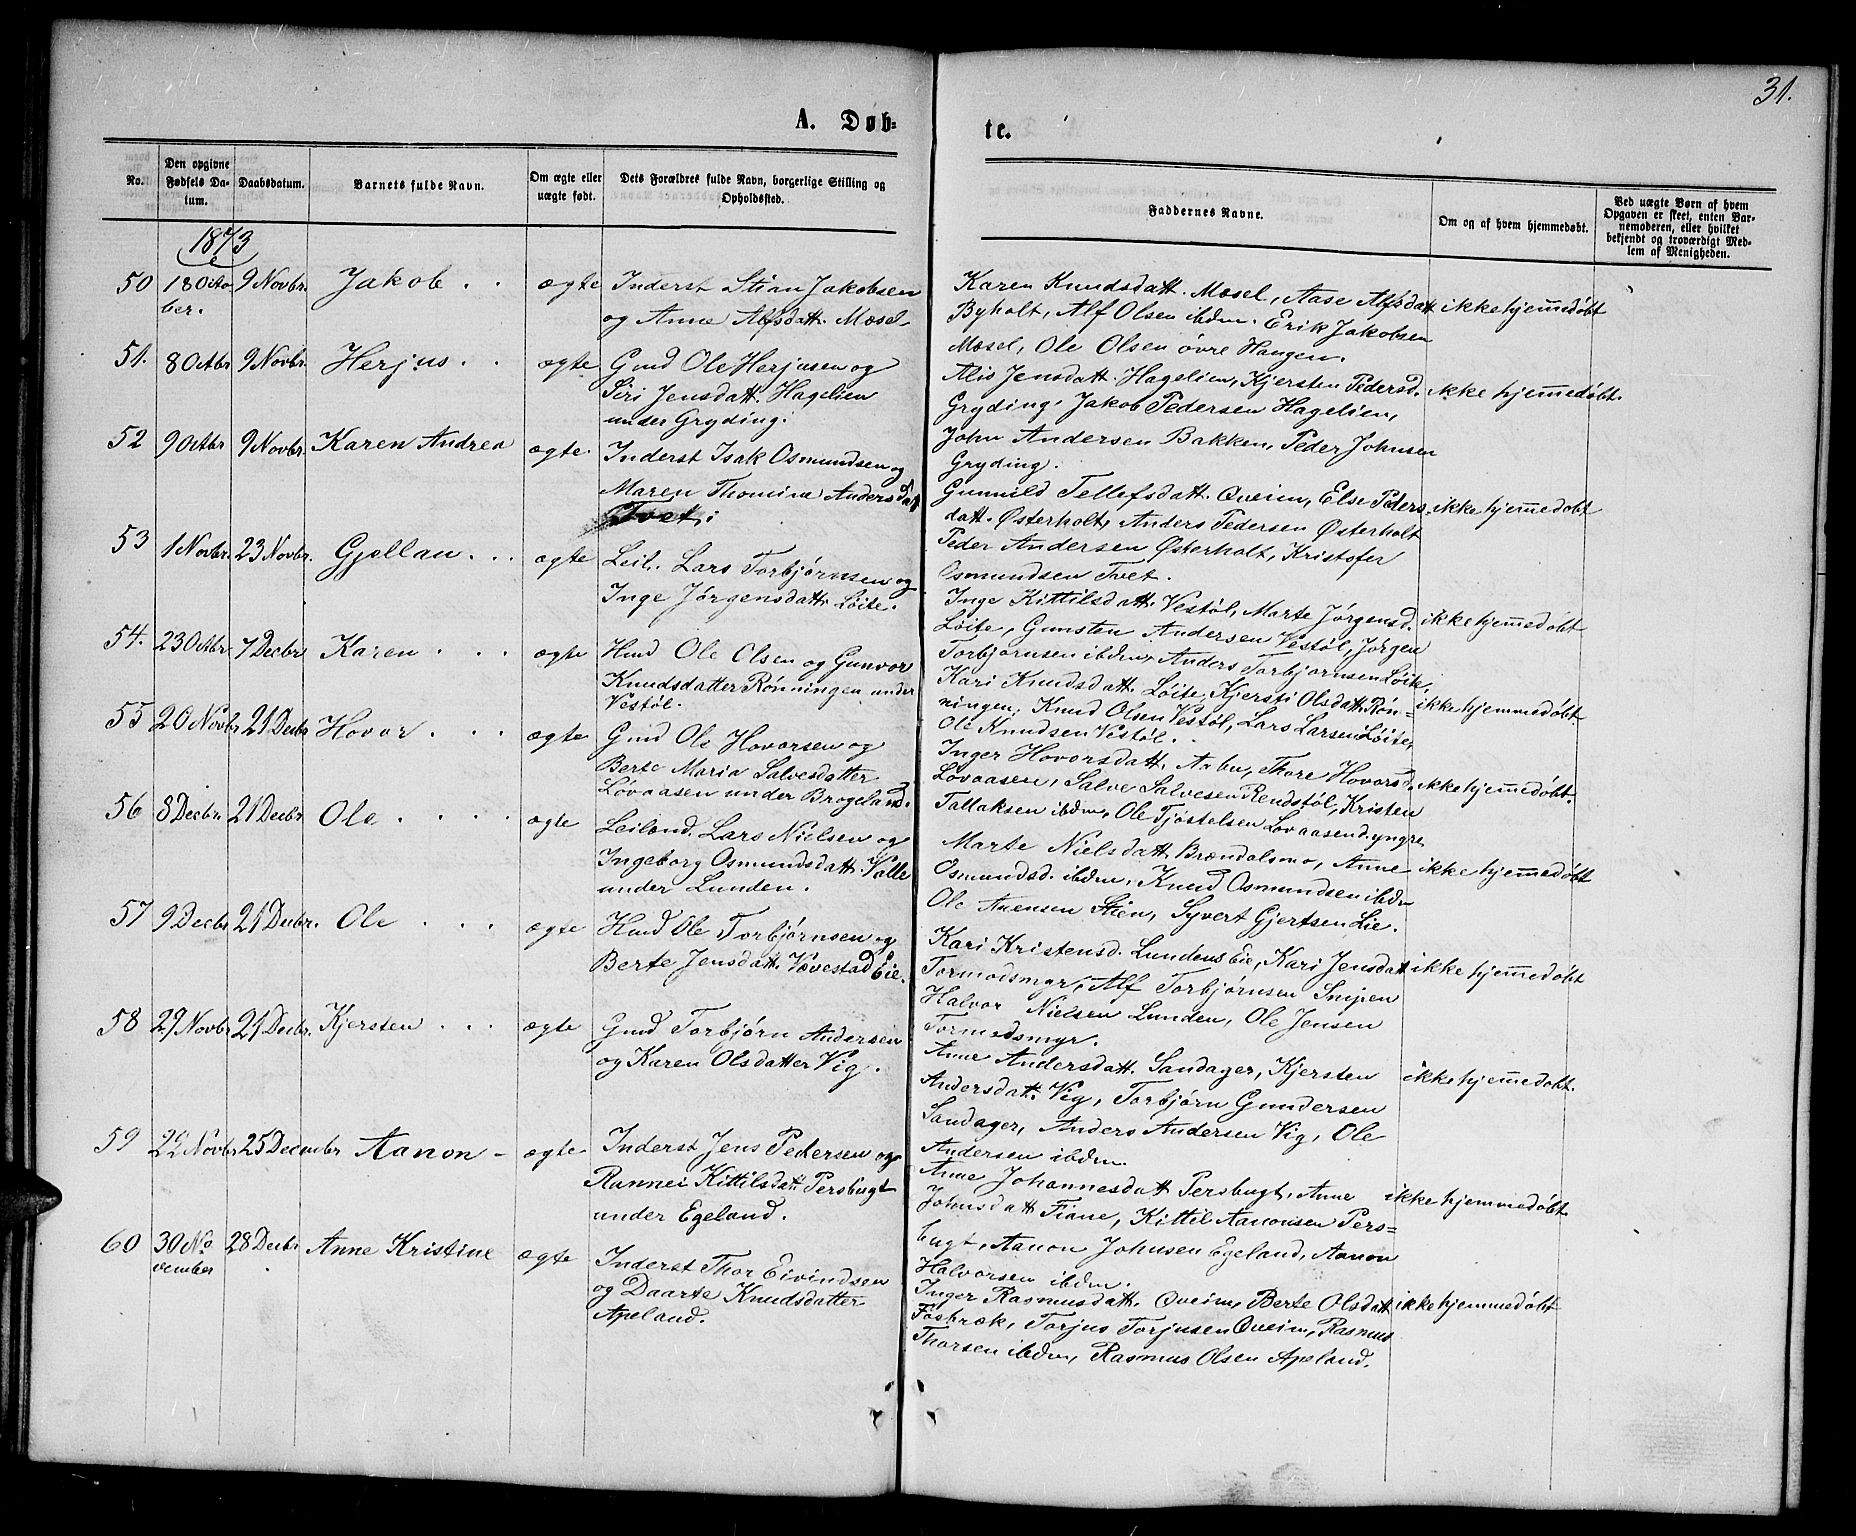 31.
A. Døb-
te.
No.
Den opgivne Fødsels Datum.
Daabsdatum.
Barnets fulde Navn.
Om ægte eller uægte født.
Dets Forældres fulde Navn, borgerlige Stilling og Opholdssted.
Faddernes Navne.
Om og af hvem hjemmedøbt.
Ved uægte Børn af hvem Opgaven er skeet, enten Barnemoderen, eller hvilket bekjendt og troværdigt Medlem af Menigheden.
1873
50 18 Octo- 9 Novbr. Jakob . . ægte Inderst Stian Jakobsen
ber. og Anne Alfsdatt. Mæsel.
Karen Knudsdatt. Mæsel, Aase Alfsdatt ikke hjemmedøbt
Byholt, Alf Olsen ibdm. Erik Jakobsen
Mæsel, Ole Olsen øvre Haugen.
51. 8 Octbr 9 Novbr. Herjus . . ægte Gmd Ole Herjusen og
Siri Jensdatt. Hagelien
under Gryding.
Alis Jensdatt. Hagelien, Kjersten Pedersd. ikke hjemmedøbt.
Gryding, Jakob Pedersen Hagelien,
John Andersen Bakken, Peder Johnsen
Gryding.
52 9 Octbr 9 Novbr. Karen Andrea ægte. Inderst Isak Osmundsen og
Maren Thomine Andersdatt
Tvet.
Gunnild Tellefsdatt. Qveim, Else Peders- ikke hjemmedøbt
datt. Østerholt, Anders Pedersen Østerholt
Peder Andersen Østerholt, Kristofer
Osmundsen Tvet.
53 1 Novbr. 23 Novbr. Gjellau . . . ægte Leil. Lars Torbjørnsen og
Inge Jørgensdatt. Løite.
Inge Kittilsdatt. Vestøl, Marte Jørgensd. ikke hjemmedøbt
Løite, Gunsten Andersen Vestøl, Jørgen
Torbjørnsen ibdm, Anders Torbjørnsen Løite.
54. 23 Octbr. 7 Decbr Karen . . . ægte Hmd Ole Olsen og Gunvor
Knudsdatter Rønningen under
Vestøl.
Kari Knudsdatt. Løite, Kjersti Olsdatt. Røn- ikke hjemmedøbt
ningen, Knud Olsen Vestøl, Lars Larsen Løite,
Ole Knudsen Vestøl.
55 20 Novbr 21 Decbr Hovor . . . ægte Gmd Ole Hovorsen og
Berte Maria Salvesdatter
Løvaasen under Brogeland.
Inger Hovorsdatt. Aabu, Thore Hovorsd. ikke hjemmedøbt.
Løvaasen, Salve Salvesen Rendstøl, Kristen
Tallaksen ibdm, Ole Tjøstelsen Løvaasen d. yngre
56 8 Decbr. 21 Decbr. Ole . . . . ægte Leilend. Lars Nielsen og
Ingeborg Osmundsdatt. Valle
under Lunden.
Marte Nielsdatt. Brændalsmo, Anne ikke hjemmedøbt
Osmundsd. ibdm, Knud Osmundsen ibdm
Ole Anensen Stien, Syvert Gjertsen Lie.
57 9 Decbr 21 Decbr. Ole . . . ægte Hmd Ole Torbjørnsen og
Berte Jensdatt. Vævestad Eie.
Kari Kristensd. Lundens Eie, Kari Jensdatt ikke hjemmedøbt
Tormodsmyr, Alf Torbjørnsen Snipen
Halvor Nielsen Lunden, Ole Jensen
Tormodsmyr.
58 29 Novbr 21 Decbr. Kjersten . . . ægte Gmd Torbjørn Andersen
og Karen Olsdatter Vig.
Anne Andersdatt. Sandager, Kjersten ikke hjemmedøbt.
Andersdatt. Vig, Torbjørn Gundersen
Sandager, Anders Andersen Vig, Ole
Andersen ibdm.
59 22 Novbr 25 December Aanon - ægte Inderst Jens Pedersen og
Rannei Kittilsdatt. Persbugt
under Egeland.
Anne Johannesdatt Persbugt, Anne ikke hjemmedøbt
Johnsdatt Fiane, Kittil Aanonsen Pers-
bugt, Aanon Johnsen Egeland, Aanon
Halvorsen ibdm.
60 30 No- 28 Decbr Anne Kristine ægte Inderst Thor Eivindsen
vember og Daarte Knudsdatter
Apeland.
Inger Rasmusdatt. Qveim, Berte Olsdatt ikke hjemmedøbt
Fosbræk, Torjus Torjusen Qveim, Rasmus
Thorsen ibdm, Rasmus Olsen Apeland.